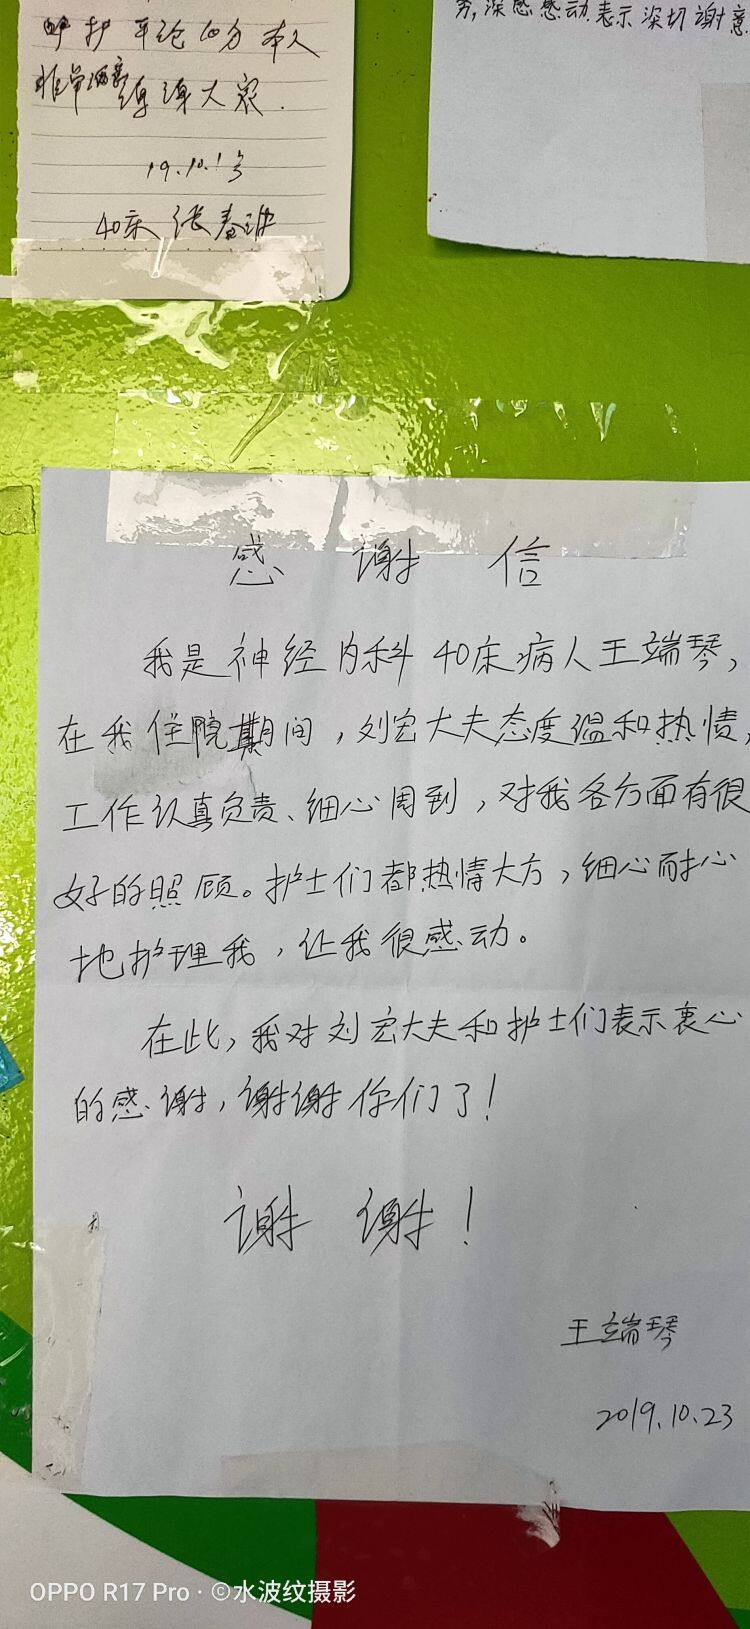 本人
谢谢大家.
19.10.1号
40床 张春
务,深感感动.表示深切谢意
感谢信
我是神经内科40床病人王端琴,
在我住院期间,刘宏大夫态度温和热情,
工作认真负责、细心周到,对我各方面有很
好的照顾。护士们都热情大方,细心耐心
地护理我,让我很感动。
在此,我对刘宏大夫和护士们表示衷心
的感谢,谢谢你们了!
谢谢!
王端琴
2019.10.23
OPPO R17 Pro · ©水波纹摄影